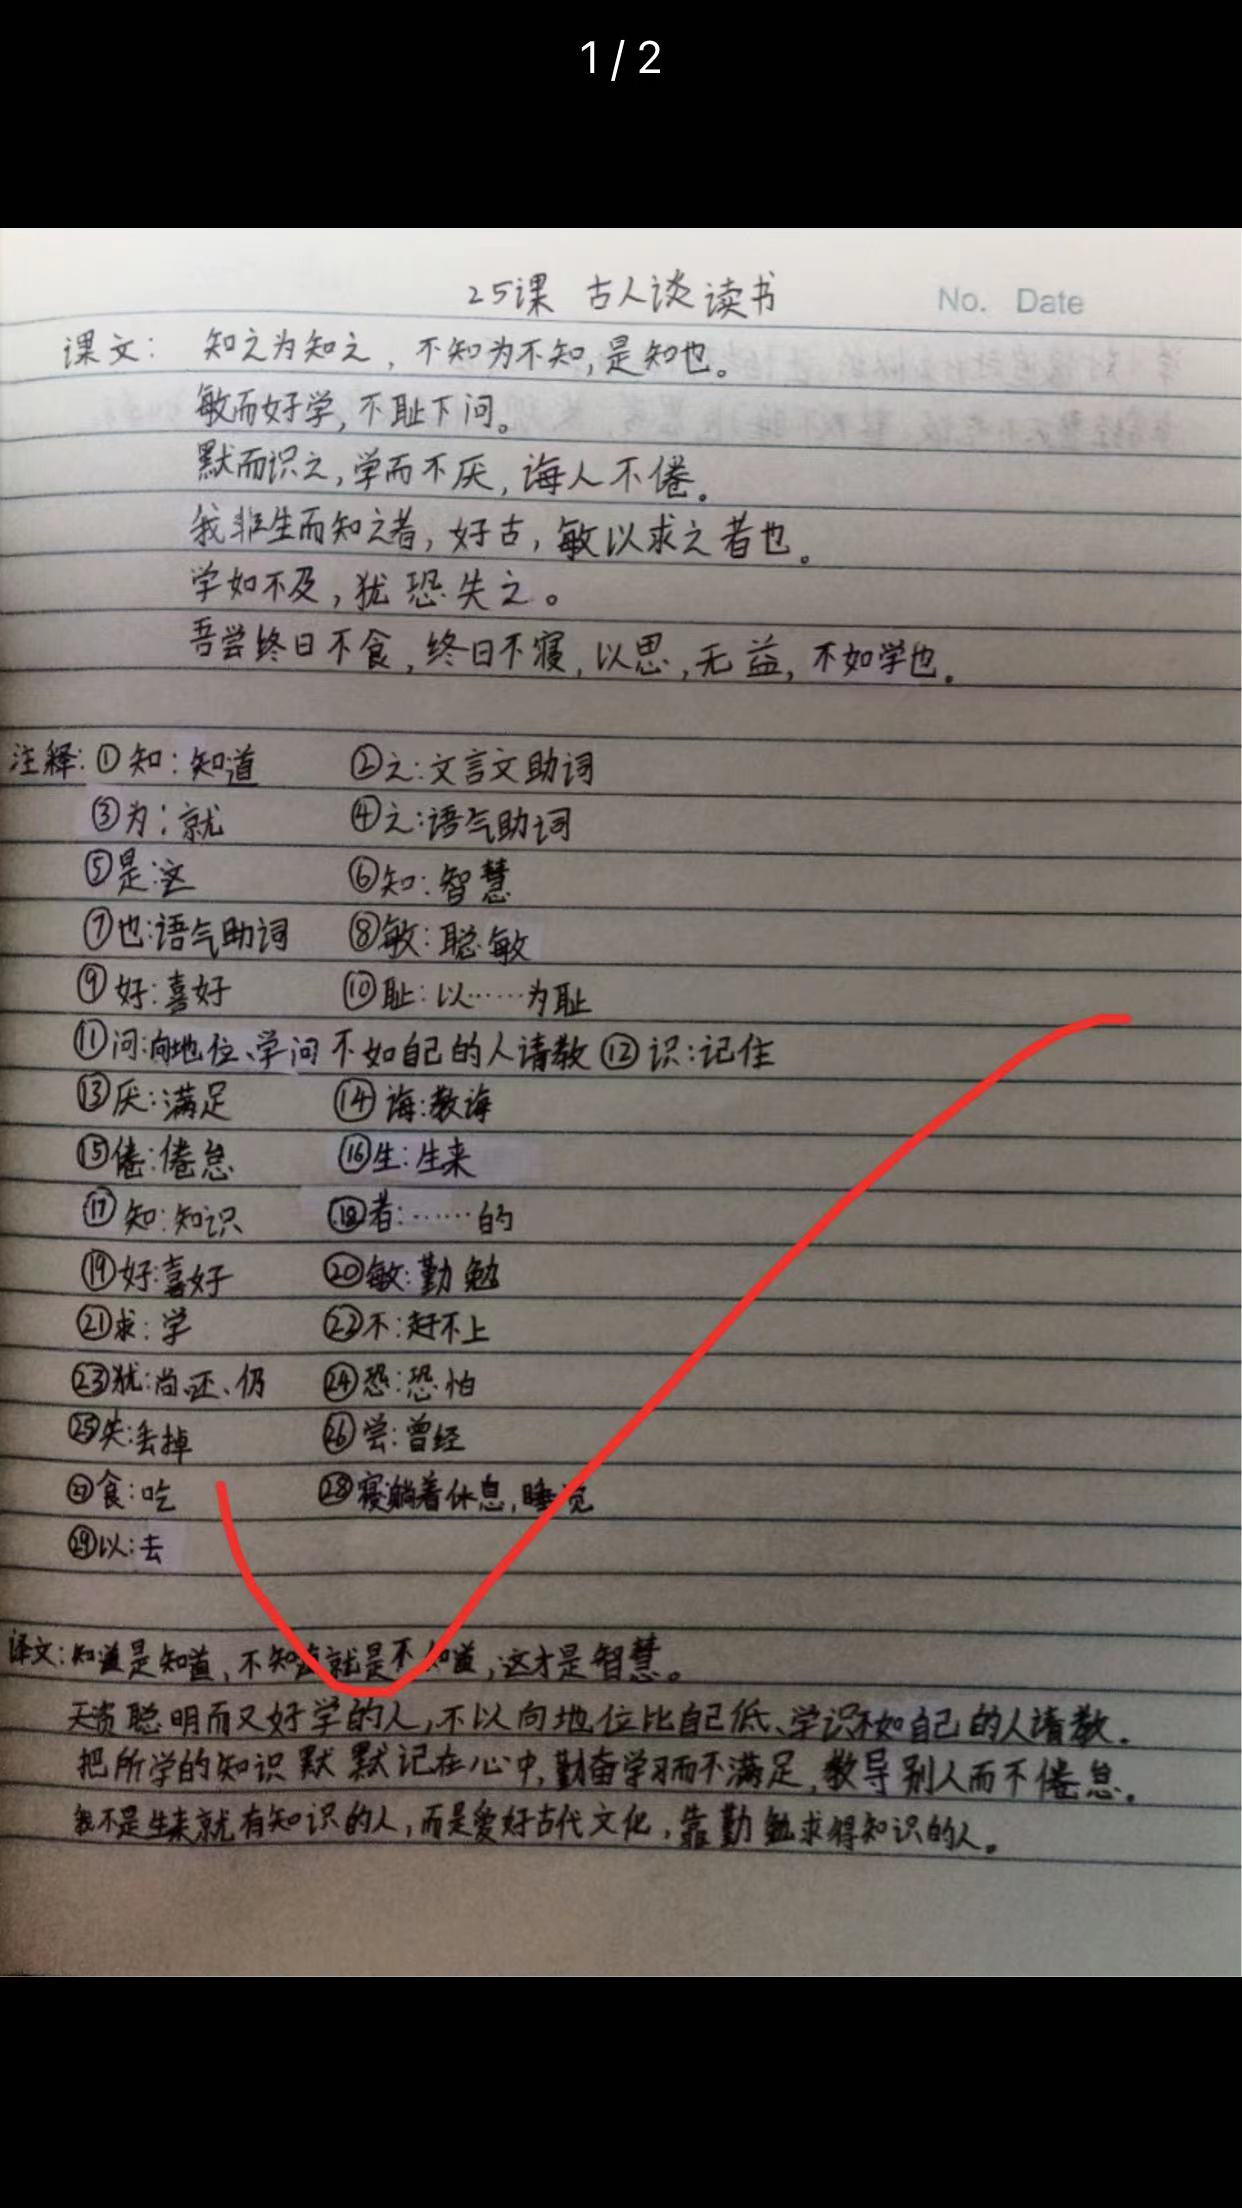 1 / 2
25课 古人谈读书
No. Date
课文： 知之为知之，不知为不知，是知也。
敏而好学，不耻下问。
默而识之，学而不厌，诲人不倦。
我非生而知之者，好古，敏以求之者也。
学如不及，犹恐失之。
吾尝终日不食，终日不寝，以思，无益，不如学也。
注释：①知：知道 ②之：文言文助词
③为：就 ④之：语气助词
⑤是：这 ⑥知：智慧
⑦也：语气助词 ⑧敏：聪敏
⑨好：喜好 ⑩耻：以……为耻
⑪问：向地位、学问不如自己的人请教 ⑫识：记住
⑬厌：满足 ⑭诲：教诲
⑮倦：倦怠 ⑯生：生来
⑰知：知识 ⑱者：……的
⑲好：喜好 ⑳敏：勤勉
㉑求：学 ㉒不：赶不上
㉓犹：尚、还、仍 ㉔恐：恐怕
㉕失：丢掉 ㉖尝：曾经
㉗食：吃 ㉘寝：躺着休息，睡觉
㉙以：去
译文：知道是知道，不知道就是不知道，这才是智慧。
天资聪明而又好学的人，不以向地位比自己低、学识不如自己的人请教。
把所学的知识默默记在心中，勤奋学习而不满足，教导别人而不倦怠。
我不是生来就有知识的人，而是爱好古代文化，靠勤勉求得知识的人。